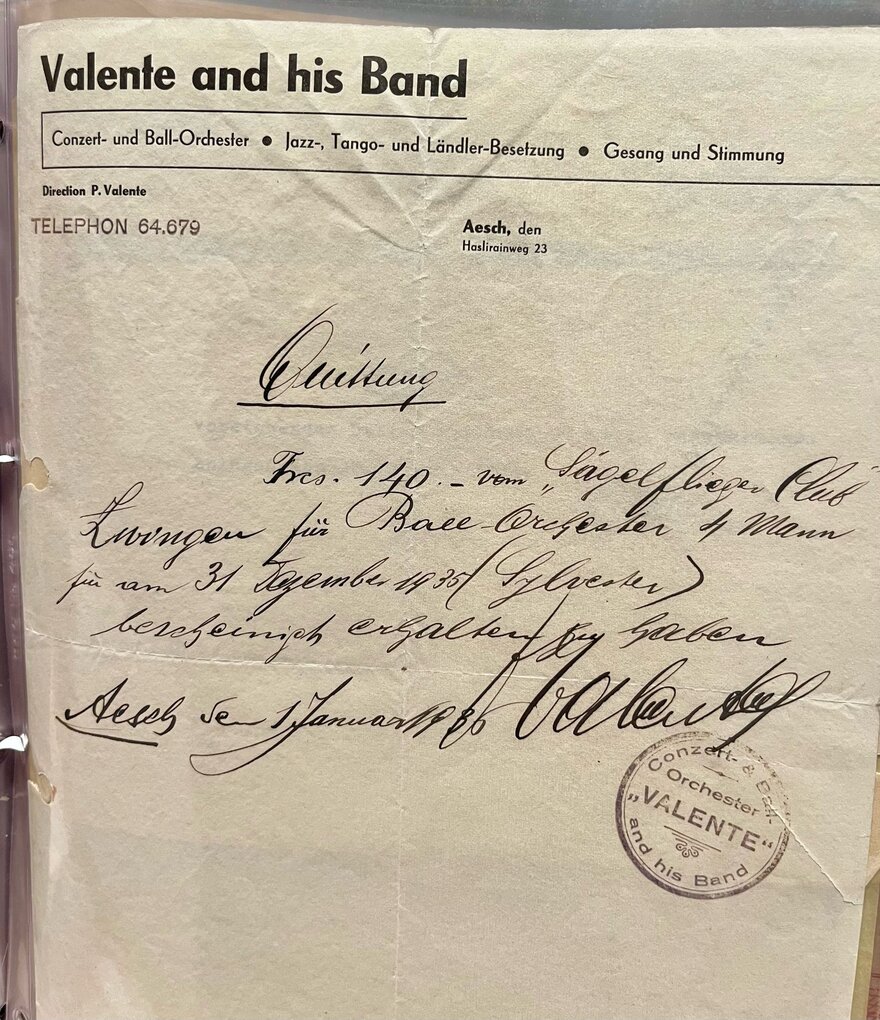 Valente and his Band
Conzert- und Ball-Orchester ● Jazz-, Tango- und Ländler-Besetzung ● Gesang und Stimmung
Direction P. Valente
TELEPHON 64.679
Aesch, den
Haslirainweg 23
Quittung
Frcs. 140.- vom „Sägelflieger Club"
Zwingen für Ball-Orchester 4 Mann
für am 31 Dezember 1935 (Sylvester)
bescheinigt erhalten zu haben
Aesch den 1 Januar 1936 Valente
Conzert- & Ball-
Orchester
„VALENTE“
and his Band